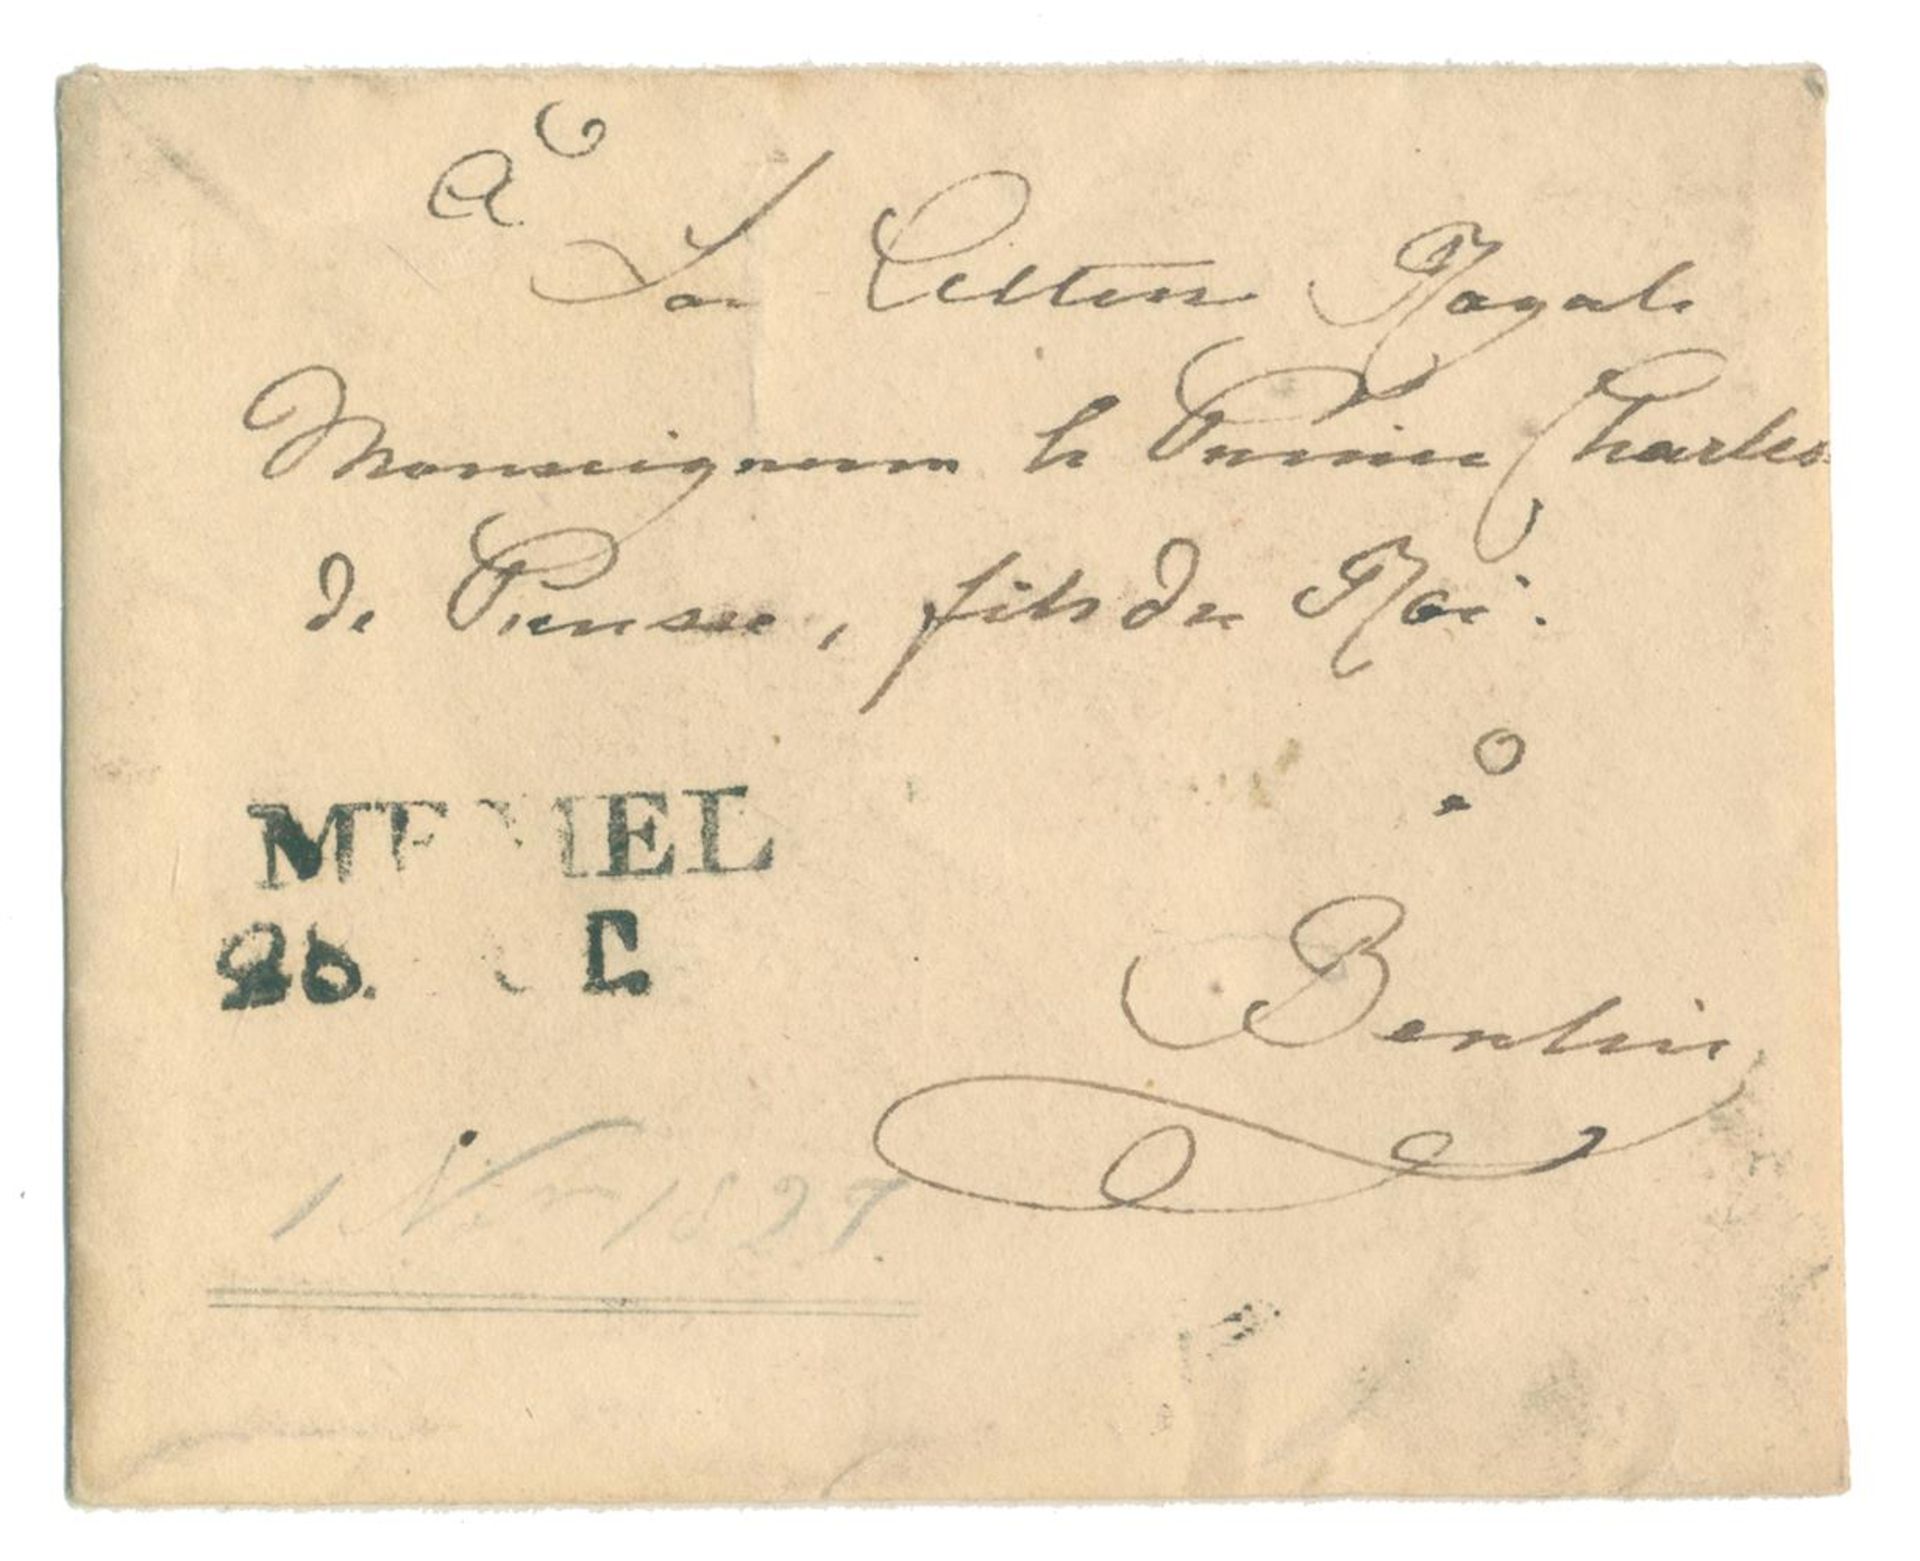 A
Son Altesse Royale
Monseigneur le Prince Charles
de Prusse, fils du Roi.
à
MEMEL
Berlin
1 Nov 1827